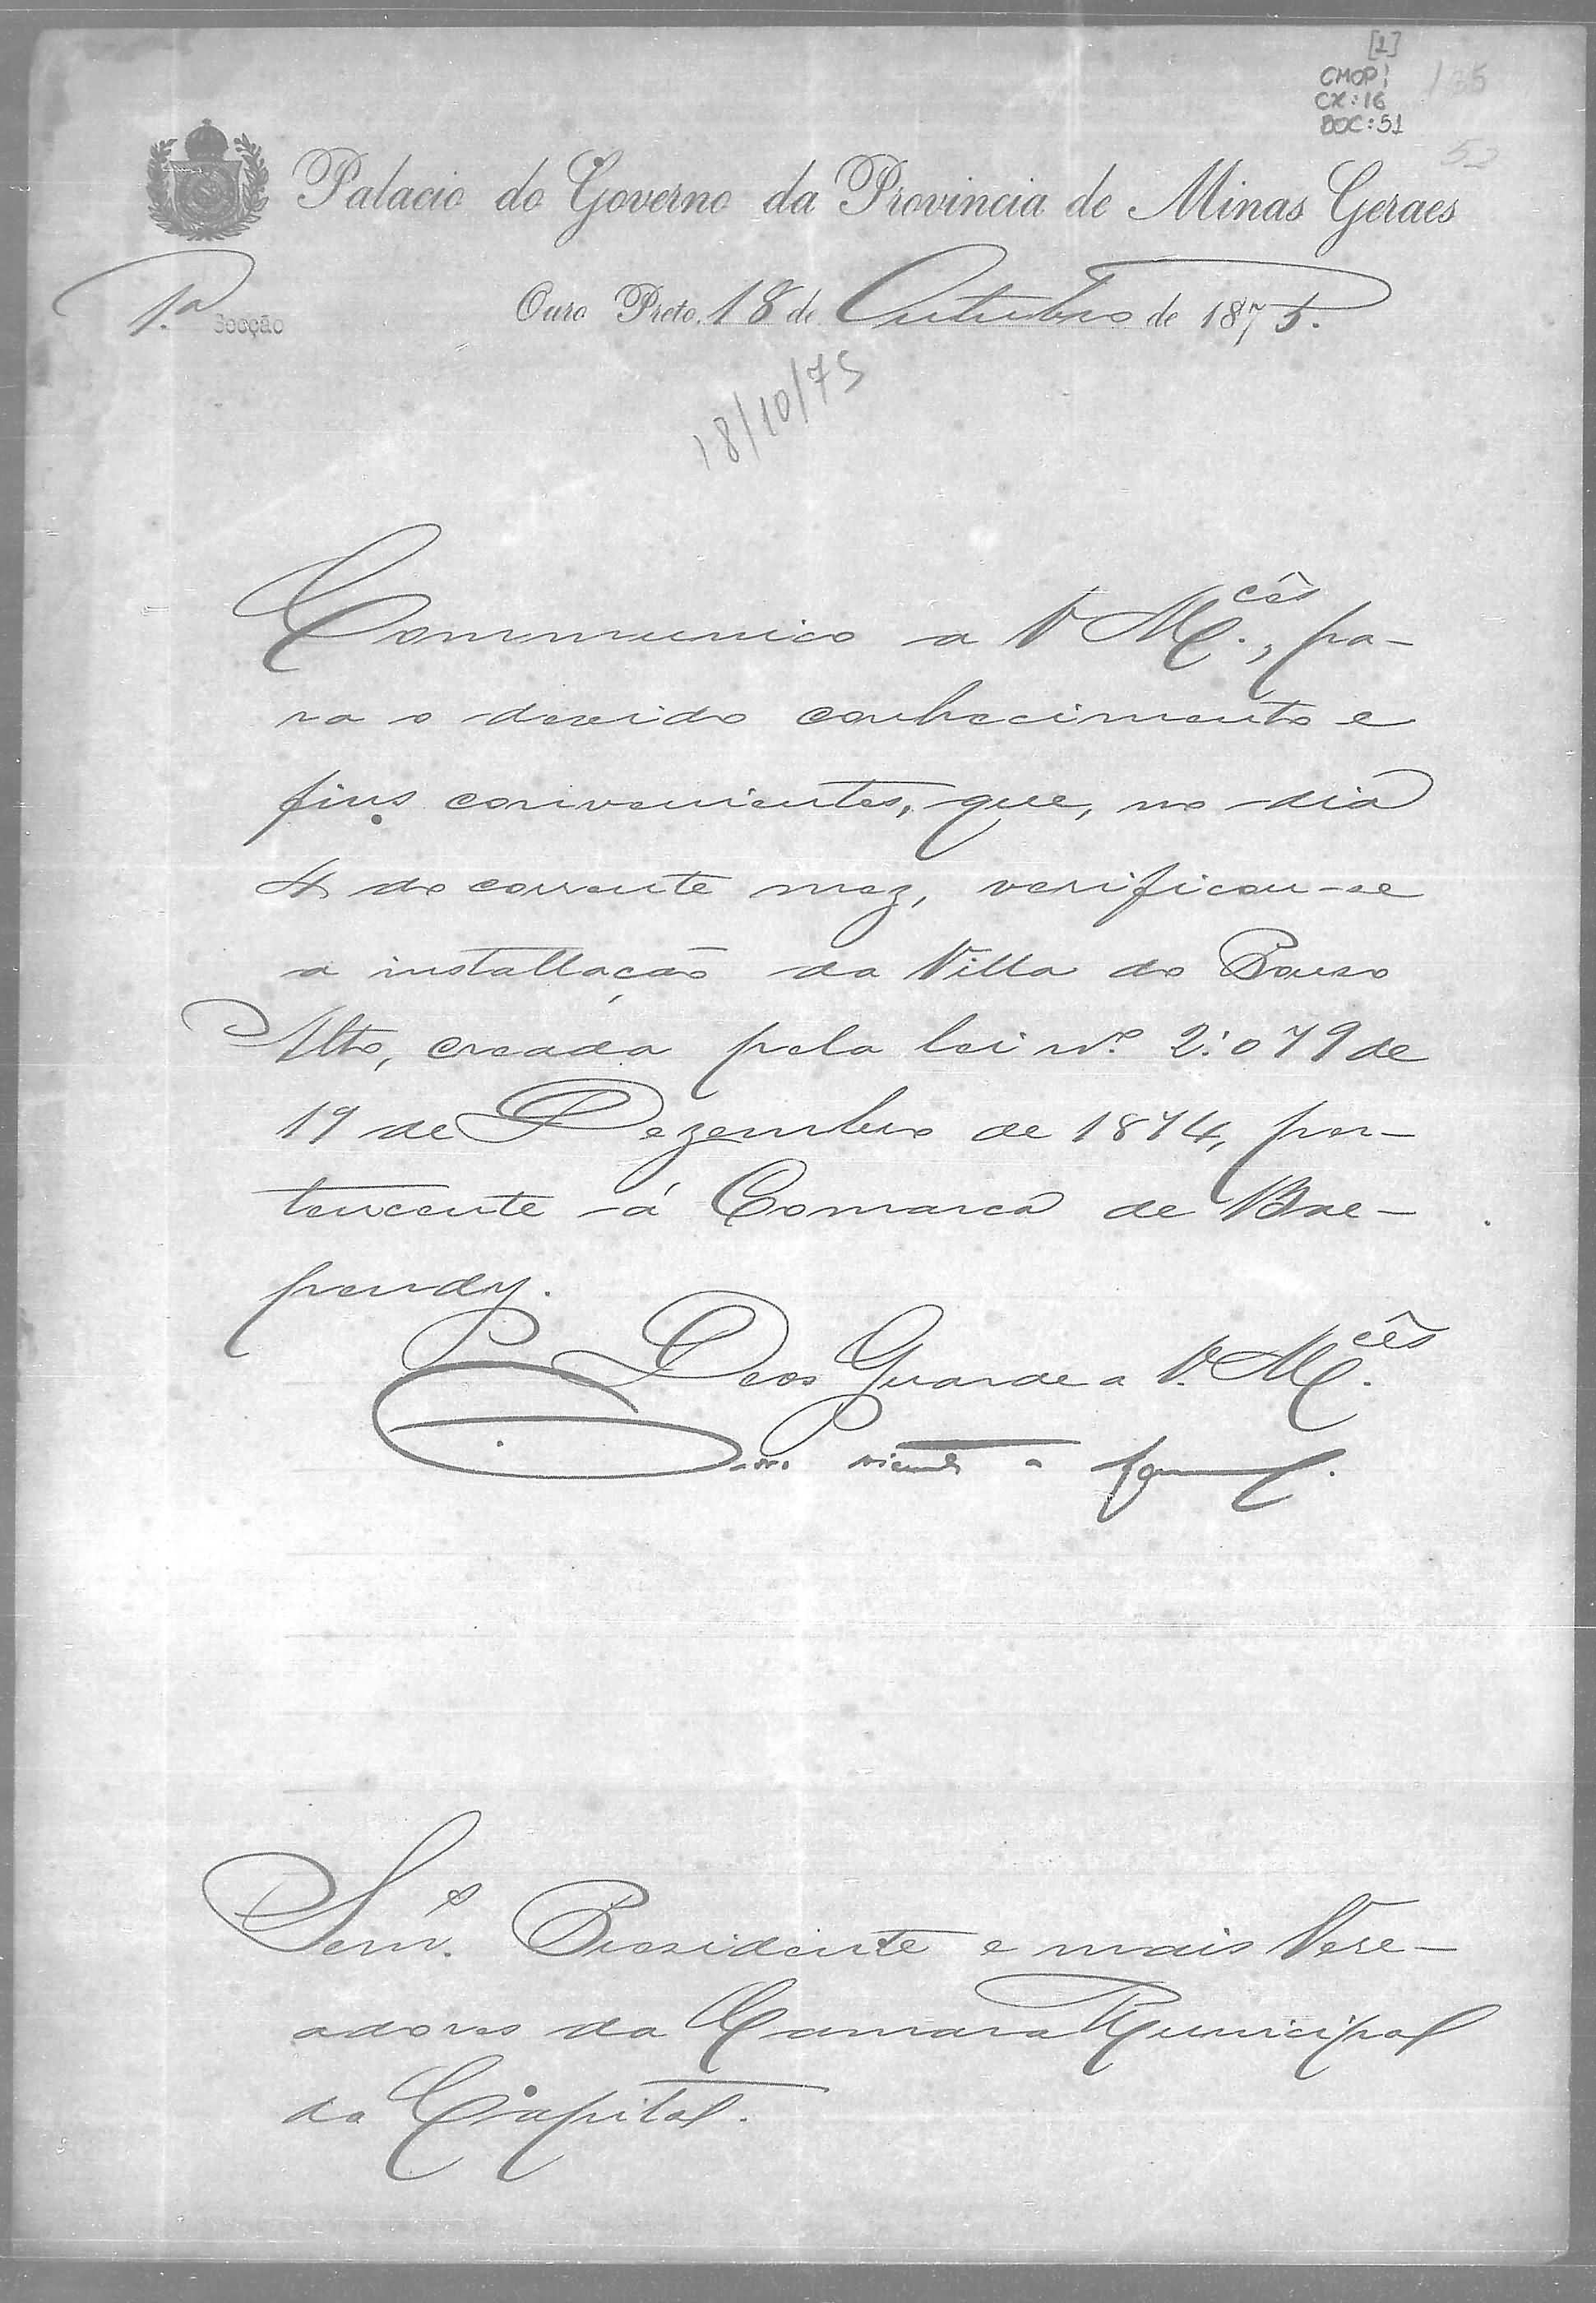 [1]
CMOP!
CX: 16
DOC: 51
135
52
Palacio do Governo da Provincia de Minas Geraes
1.ª Secção
Ouro Preto, 18 de Outubro de 1875.
18/10/75
Communico a V Mcês., pa-
ra o devido conhecimento e
fins convenientes, que, no dia
4 do corrente mez, verificou-se
a installação da Villa do Pouso
Alto, creada pela lei nº 2:079 de
19 de Dezembro de 1874, per-
tencente á Comarca de Bae-
pendy.
Deos Guarde a V. Mcês.
Senrs. Presidente e mais Vere-
adores da Camara Municipal
da Capital.